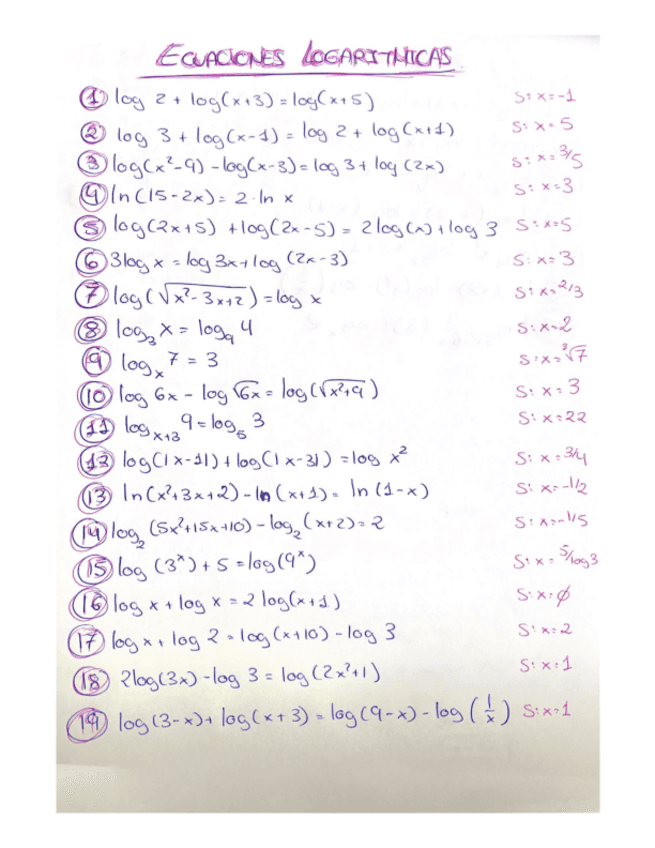 ECUACIONES LOGARITMICAS
① log 2 + log(x+3) = log(x+5) S: x=-1
② log 3 + log(x-1) = log 2 + log(x+1) S: x=5
③ log(x²-9) - log(x-3) = log 3 + log (2x) S: x=3/5
④ ln(15-2x) = 2·ln x S: x=3
⑤ log(2x+5) + log(2x-5) = 2log(x) + log 3 S: x=5
⑥ 3log x = log 3x + log (2x-3) S: x=3
⑦ log(√x²-3x+2) = log x S: x=2/3
⑧ log₃ x = log₉ 4 S: x=2
⑨ logₓ 7 = 3 S: x=³√7
⑩ log 6x - log √6x = log(√x²+9) S: x=3
⑪ logₓ₊₃ 9 = log₅ 3 S: x=22
⑫ log(|x-1|) + log(|x-3|) = log x² S: x=3/4
⑬ ln(x²+3x+2) - ln(x+1) = ln(1-x) S: x=-1/2
⑭ log₂ (5x²+15x+10) - log₂(x+2) = 2 S: x=-1/5
⑮ log (3ˣ) + 5 = log(9ˣ) S: x=5/log3
⑯ log x + log x = 2 log(x+1) S: x=ϕ
⑰ log x + log 2 = log(x+10) - log 3 S: x=2
⑱ 2log(3x) - log 3 = log(2x²+1) S: x=1
⑲ log(3-x) + log(x+3) = log(9-x) - log (1/x) S: x=1